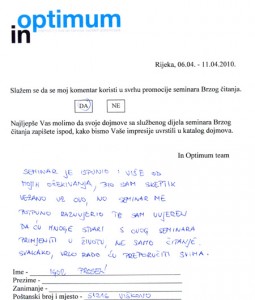 optimum
in
Rijeka, 06.04. - 11.04.2010.
Slažem se da se moj komentar koristi u svrhu promocije seminara Brzog čitanja.
DA NE
Najljepše Vas molimo da svoje dojmove sa službenog dijela seminara Brzog
čitanja zapišete ispod, kako bismo Vaše impresije uvrstili u katalog dojmova.
In Optimum team
SEMINAR JE ISPUNIO I VIŠE OD
MOJIH OČEKIVANJA, BIO SAM SKEPTIK
VEZANO UZ OVO, NO SEMINAR ME
POTPUNO RAZUVJERIO TE SAM UVJEREN
DA ĆU MNOGE STVARI S OVOG SEMINARA
PRIMJENITI U ŽIVOTU, NE SAMO ČITANJE.
SVAKAKO, VRLO RADO ĆU PREPORUČITI SVIMA.
Ime - IGOR
Prezime -
Zanimanje -
Poštanski broj i mjesto - VIŠKOVO